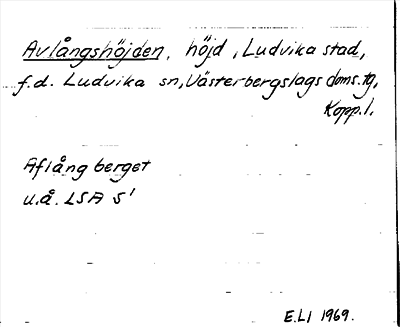 Avlångshöjden, höjd, Ludvika stad,
f.d. Ludvika sn, Västerbergslags doms.tg,
Kopp.l.
Aflångberget
u.å. LSA S'
E.LI 1969.